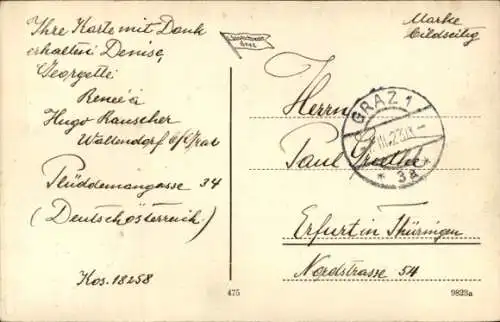 Ihre Karte mit Dank
erhalten Denise,
Georgette
Renée à
Hugo Rauscher
Waltendorf b/Graz
Plüddemangasse 34
(Deutschösterreich)
Kos. 18258
Marke
bildseitig
Herrn
Paul
Erfurt in Thüringen
Nordstrasse 54
GRAZ 1
* 3a *
475
9823a